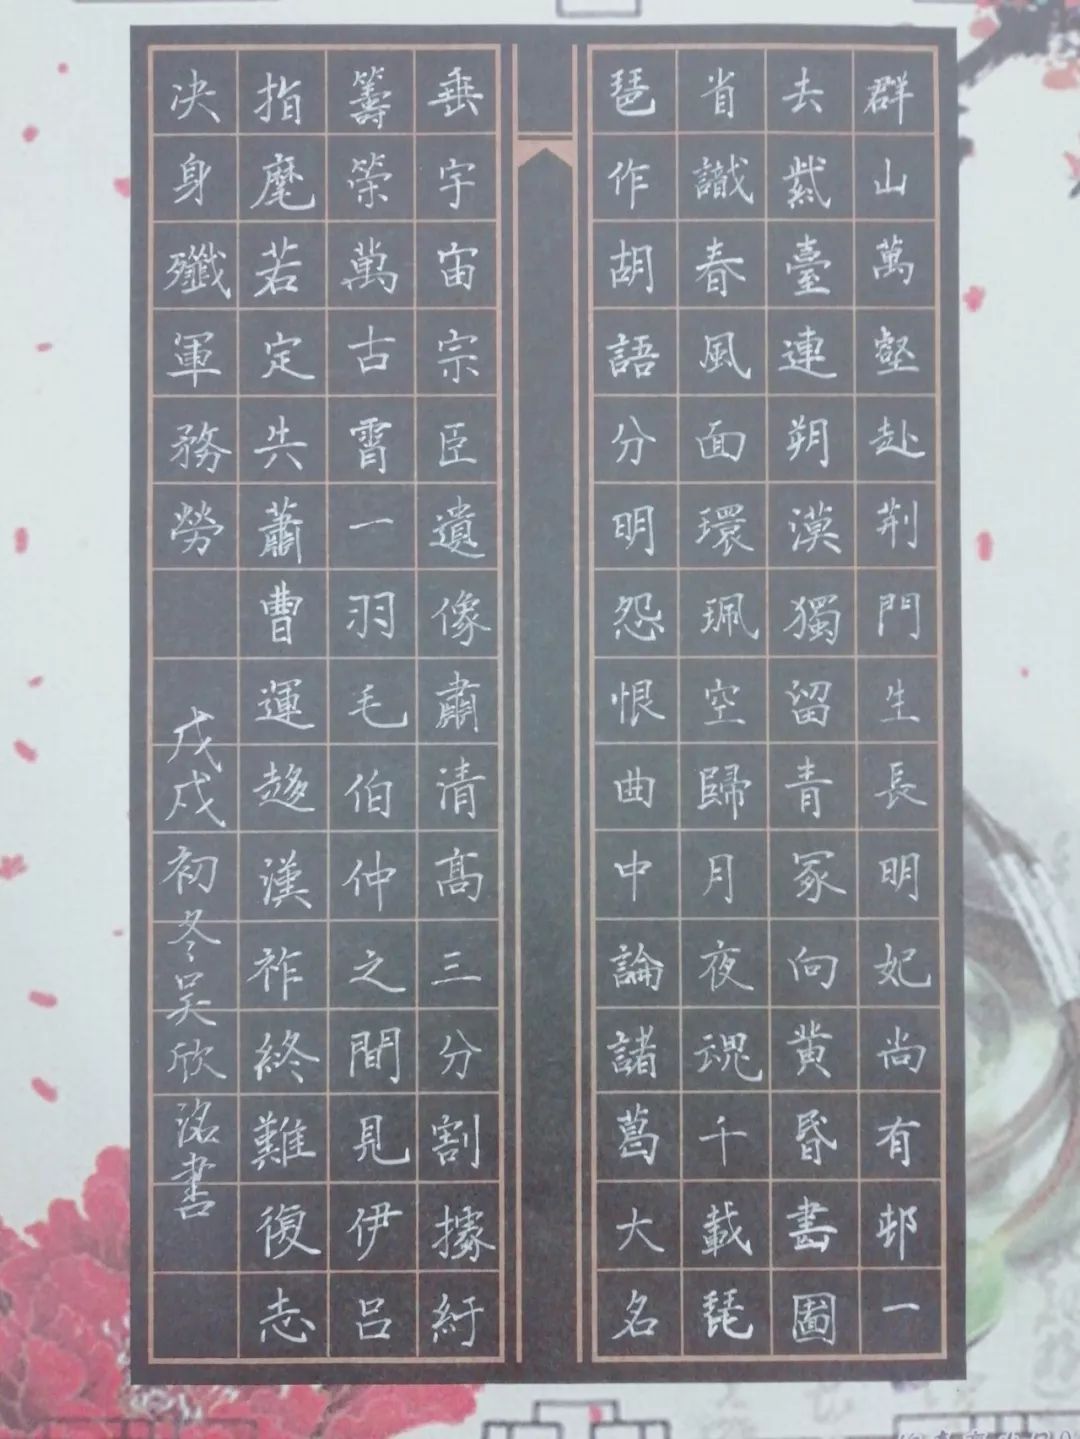 群山萬壑赴荆門生長明妃尚有邨一
去紫臺連朔漠獨留青冢向黄昏畫圖
省識春風面環珮空歸月夜魂千載琵
琶作胡語分明怨恨曲中論諸葛大名
垂宇宙宗臣遺像肅清高三分割據紆
籌䇿萬古霄一羽毛伯仲之間見伊吕
指麾若定失蕭曹運趍漢祚終難復志
决身殲軍務勞
戊戌初冬吴欣洺書